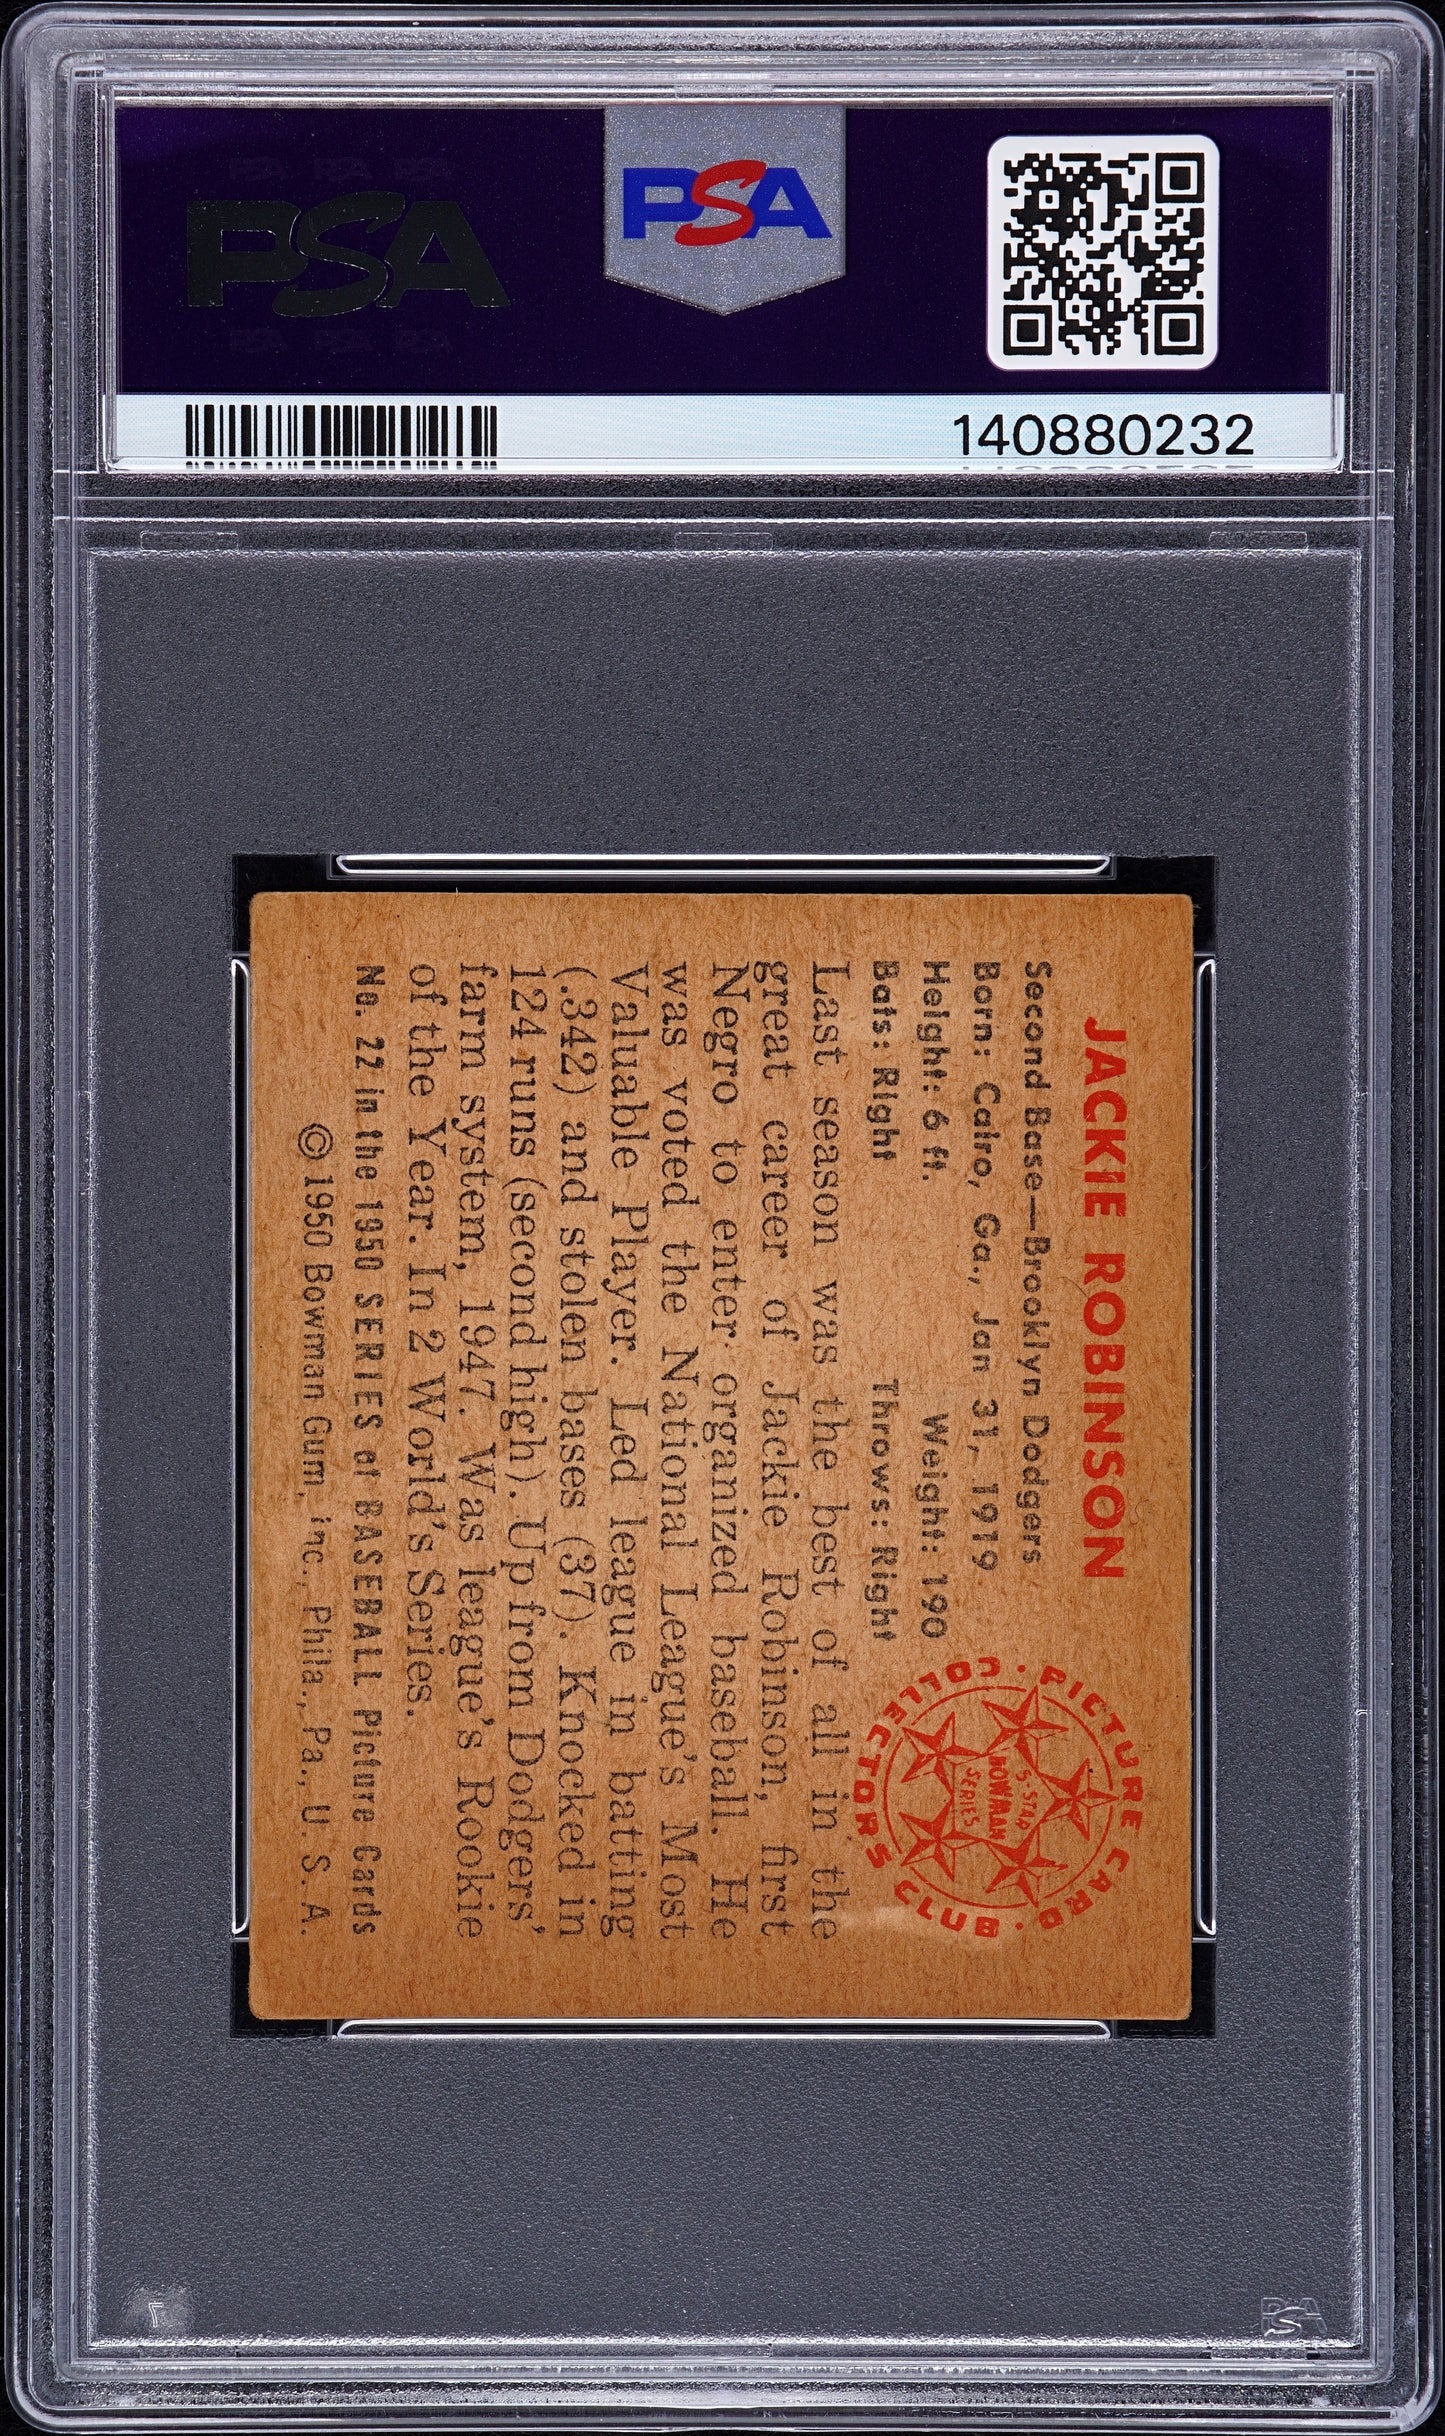 PSA
PSA
140880232
JACKIE ROBINSON
Second Base—Brooklyn Dodgers
Born: Cairo, Ga., Jan 31, 1919
Height: 6 ft. Weight: 190
Bats: Right Throws: Right
PICTURE CARD · COLLECTORS CLUB ·
5-STAR
BOWMAN
SERIES
Last season was the best of all in the
great career of Jackie Robinson, first
Negro to enter organized baseball. He
was voted the National League's Most
Valuable Player. Led league in batting
(.342) and stolen bases (37). Knocked in
124 runs (second high). Up from Dodgers'
farm system, 1947. Was league's Rookie
of the Year. In 2 World's Series.
No. 22 in the 1950 SERIES of BASEBALL Picture Cards
© 1950 Bowman Gum, Inc., Phila., Pa., U. S. A.
PSA